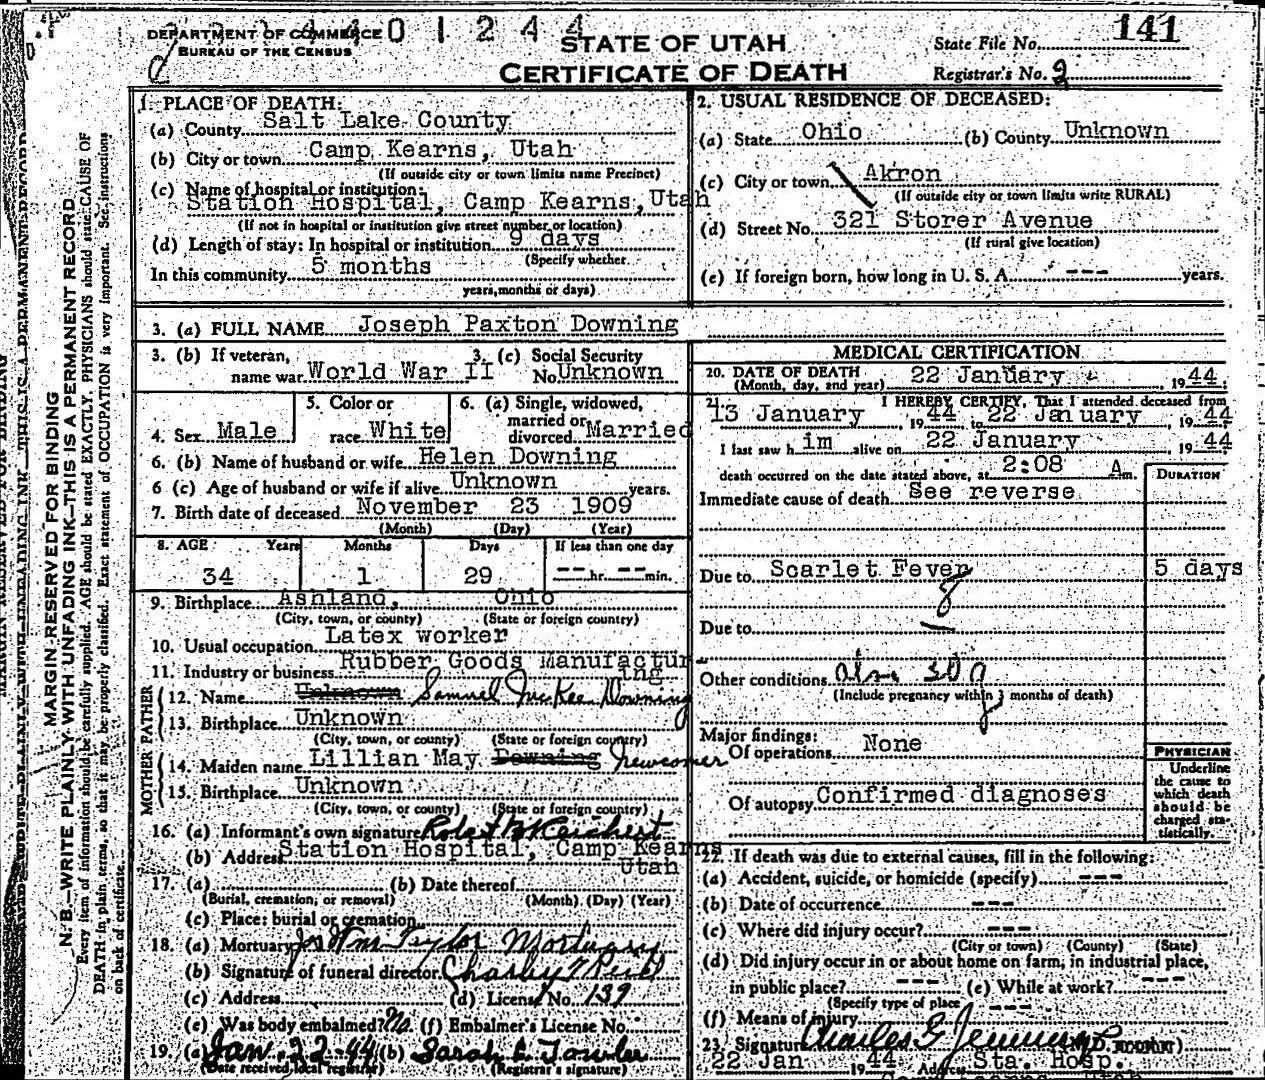 DEPARTMENT OF COMMERCE
BUREAU OF THE CENSUS
STATE OF UTAH
CERTIFICATE OF DEATH
State File No. 141
Registrar's No. 2
1. PLACE OF DEATH:
(a) County Salt Lake County
(b) City or town Camp Kearns, Utah
(If outside city or town limits name Precinct)
(c) Name of hospital or institution:
Station Hospital, Camp Kearns, Utah
(If not in hospital or institution give street number or location)
(d) Length of stay: In hospital or institution 9 days
(Specify whether
In this community 5 months
years, months or days)
2. USUAL RESIDENCE OF DECEASED:
(a) State Ohio (b) County Unknown
(c) City or town Akron
(If outside city or town limits write RURAL)
(d) Street No. 321 Storer Avenue
(If rural give location)
(e) If foreign born, how long in U. S. A. --- years.
3. (a) FULL NAME Joseph Paxton Downing
3. (b) If veteran, name war World War II 3. (c) Social Security No. Unknown
4. Sex Male 5. Color or race White 6. (a) Single, widowed, married or divorced Married
6. (b) Name of husband or wife Helen Downing
6 (c) Age of husband or wife if alive Unknown years.
7. Birth date of deceased November 23 1909
(Month) (Day) (Year)
8. AGE Years Months Days If less than one day
34 1 29 -- hr. -- min.
9. Birthplace Ashland, Ohio
(City, town, or county) (State or foreign country)
10. Usual occupation Latex worker
11. Industry or business Rubber Goods Manufacturing
FATHER
12. Name Unknown Samuel McKee Downing
13. Birthplace Unknown
(City, town, or county) (State or foreign country)
MOTHER
14. Maiden name Lillian May Downing Newcomer
15. Birthplace Unknown
(City, town, or county) (State or foreign country)
16. (a) Informant's own signature
(b) Address Station Hospital, Camp Kearns
Utah
17. (a) (b) Date thereof
(Burial, cremation, or removal) (Month) (Day) (Year)
(c) Place: burial or cremation
18. (a) Mortuary Jos Wm Taylor Mortuary
(b) Signature of funeral director
(c) Address (d) License No. 139
(e) Was body embalmed? No (f) Embalmer's License No.
19. (a) Jan. 22-44 (b) Sarah E. Towler
(Date received local registrar) (Registrar's signature)
MEDICAL CERTIFICATION
20. DATE OF DEATH
(Month, day, and year) 22 January, 1944
21. I HEREBY CERTIFY, That I attended deceased from
13 January, 1944 to 22 January, 1944
I last saw him alive on 22 January, 1944
death occurred on the date stated above, at 2:08 A m.
DURATION
Immediate cause of death See reverse
Due to Scarlet Fever 5 days
8
Due to
Other conditions
(Include pregnancy within 3 months of death)
Major findings:
Of operations None
Of autopsy Confirmed diagnoses
PHYSICIAN
Underline
the cause to
which death
should be
charged sta-
tistically.
22. If death was due to external causes, fill in the following:
(a) Accident, suicide, or homicide (specify) ---
(b) Date of occurrence ---
(c) Where did injury occur? ---
(City or town) (County) (State)
(d) Did injury occur in or about home on farm, in industrial place,
in public place? --- (e) While at work? ---
(Specify type of place
(f) Means of injury ---
23. Signature Charles G. Jennings
22 Jan 1944 Address Sta. Hosp.
MARGIN RESERVED FOR BINDING
N. B.—WRITE PLAINLY WITH UNFADING INK—THIS IS A PERMANENT RECORD
Every item of information should be carefully supplied. AGE should be stated EXACTLY. PHYSICIANS should state CAUSE OF
DEATH in plain terms, so that it may be properly classified. Exact statement of OCCUPATION is very important. See instructions
on back of certificate.